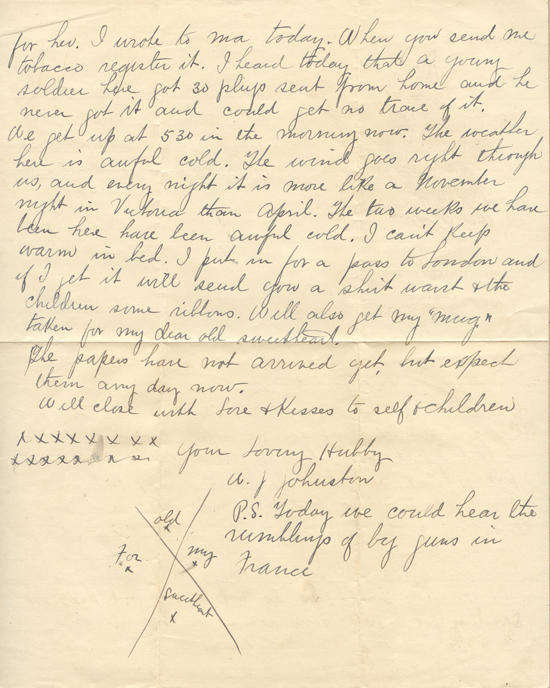 for her. I wrote to ma today. When you send me
tobacco register it. I heard today that a young
soldier here got 30 plugs sent from home and he
never got it and could get no trace of it.
We get up at 530 in the morning now. The weather
here is awful cold. The wind goes right through
us, and every night it is more like a November
night in Victoria than April. The two weeks we have
been here have been awful cold. I can't keep
warm in bed. I put in for a pass to London and
if I get it will send you a shirt waist & the
children some ribbons. Will also get my "mug"
taken for my dear old sweetheart.
The papers have not arrived yet, but expect
them any day now.
Will close with Love & Kisses to self & children
x x x x x x x x x
x x x x x x x x
Your Loving Hubby
W. J Johnston
P.S. Today we could hear the
rumblings of big guns in
France
old
x
For
x
my
x
sweetheart
x